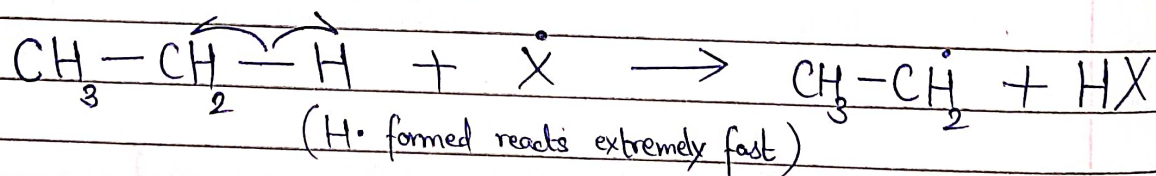 CH₃ — CH₂ — H + Ẋ ⟶ CH₃-ĊH₂ + HX
(H· formed reacts extremely fast)